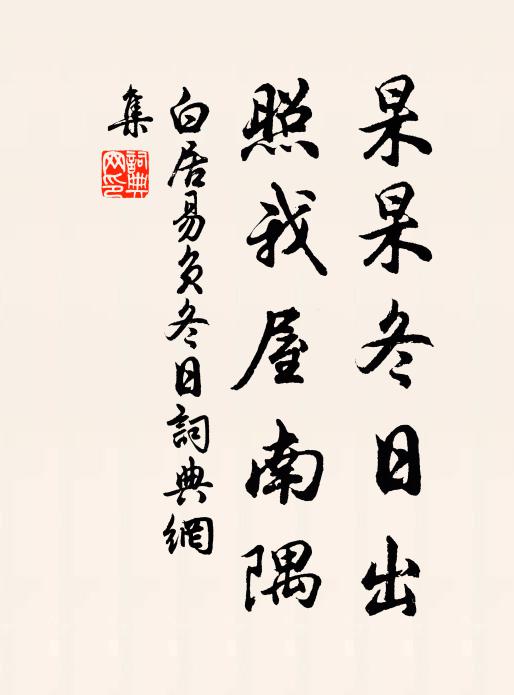 杲杲冬日出
照我屋南隅
白居易負冬日詞典網
集
詞典
网印